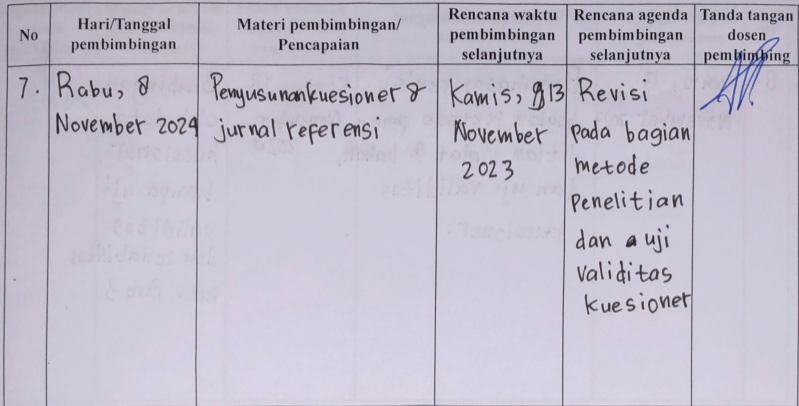 No
Hari/Tanggal
pembimbingan
Materi pembimbingan/
Pencapaian
Rencana waktu
pembimbingan
selanjutnya
Rencana agenda
pembimbingan
selanjutnya
Tanda tangan
dosen
pembimbing
7.
Rabu, 8
November 2024
Penyusunan kuesioner &
jurnal referensi
Kamis, 13
November
2023
Revisi
pada bagian
metode
penelitian
dan uji
validitas
kuesioner